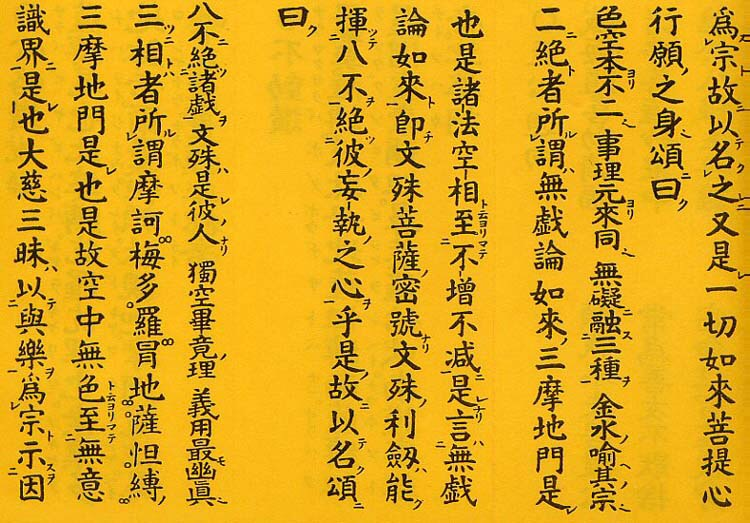 爲宗故以名之又是一切如來菩提心
行願之身頌曰
色空本不二 事理元來同 無礙融三種 金水喩其宗
二絶者所謂無戲論如來三摩地門是
也是諸法空相至不增不減是言無戲
論如來即文殊菩薩密號文殊利劔能
揮八不絶彼妄執之心乎是故以名頌
曰
八不絶諸戲 文殊是彼人 獨空畢竟理 義用最幽眞
三相者所謂摩訶梅多羅冐地薩怛縛
三摩地門是也是故空中無色至無意
識界是也大慈三昧以與樂爲宗示因